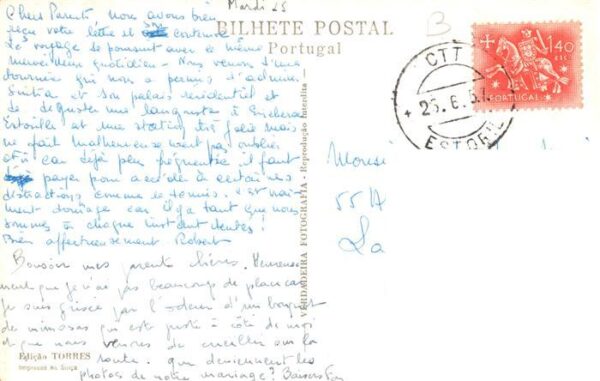 Mardi 25
BILHETE POSTAL
Portugal
Chers Parents, nous avons bien
reçu votre lettre et son contenu
Le voyage se poursuit avec le même
merveilleux quotidien - Nous venons d'une
tournée qui nous a permis d'admirer
Sintra et son palais résidentiel et
de déguster une langouste à Ericeira
Estoril est une station très jolie mais
ne fait malheureusement pas oublier
car déjà plus fréquentée il faut
payer pour accéder à certaines
distractions comme le tennis. C'est vrai-
ment dommage car il y a tant que nous
sommes à chaque instant tentés!
Bien affectueusement Robert
Bonsoir mes parents chéris. Heureuse-
ment que je n'ai pas beaucoup de place car
je suis grisée par l'odeur d'un bouquet
de mimosas qui est juste à côté de moi
et que nous venons de cueillir sur la
route. que deviennent les
photos de notre mariage? Baisers
Edição TORRES
Impresso na Suíça
VERDADEIRA FOTOGRAFIA - Reprodução interdita -
B
CTT
25.6.5
ESTORIL
1$40
PORTUGAL
55 A
La